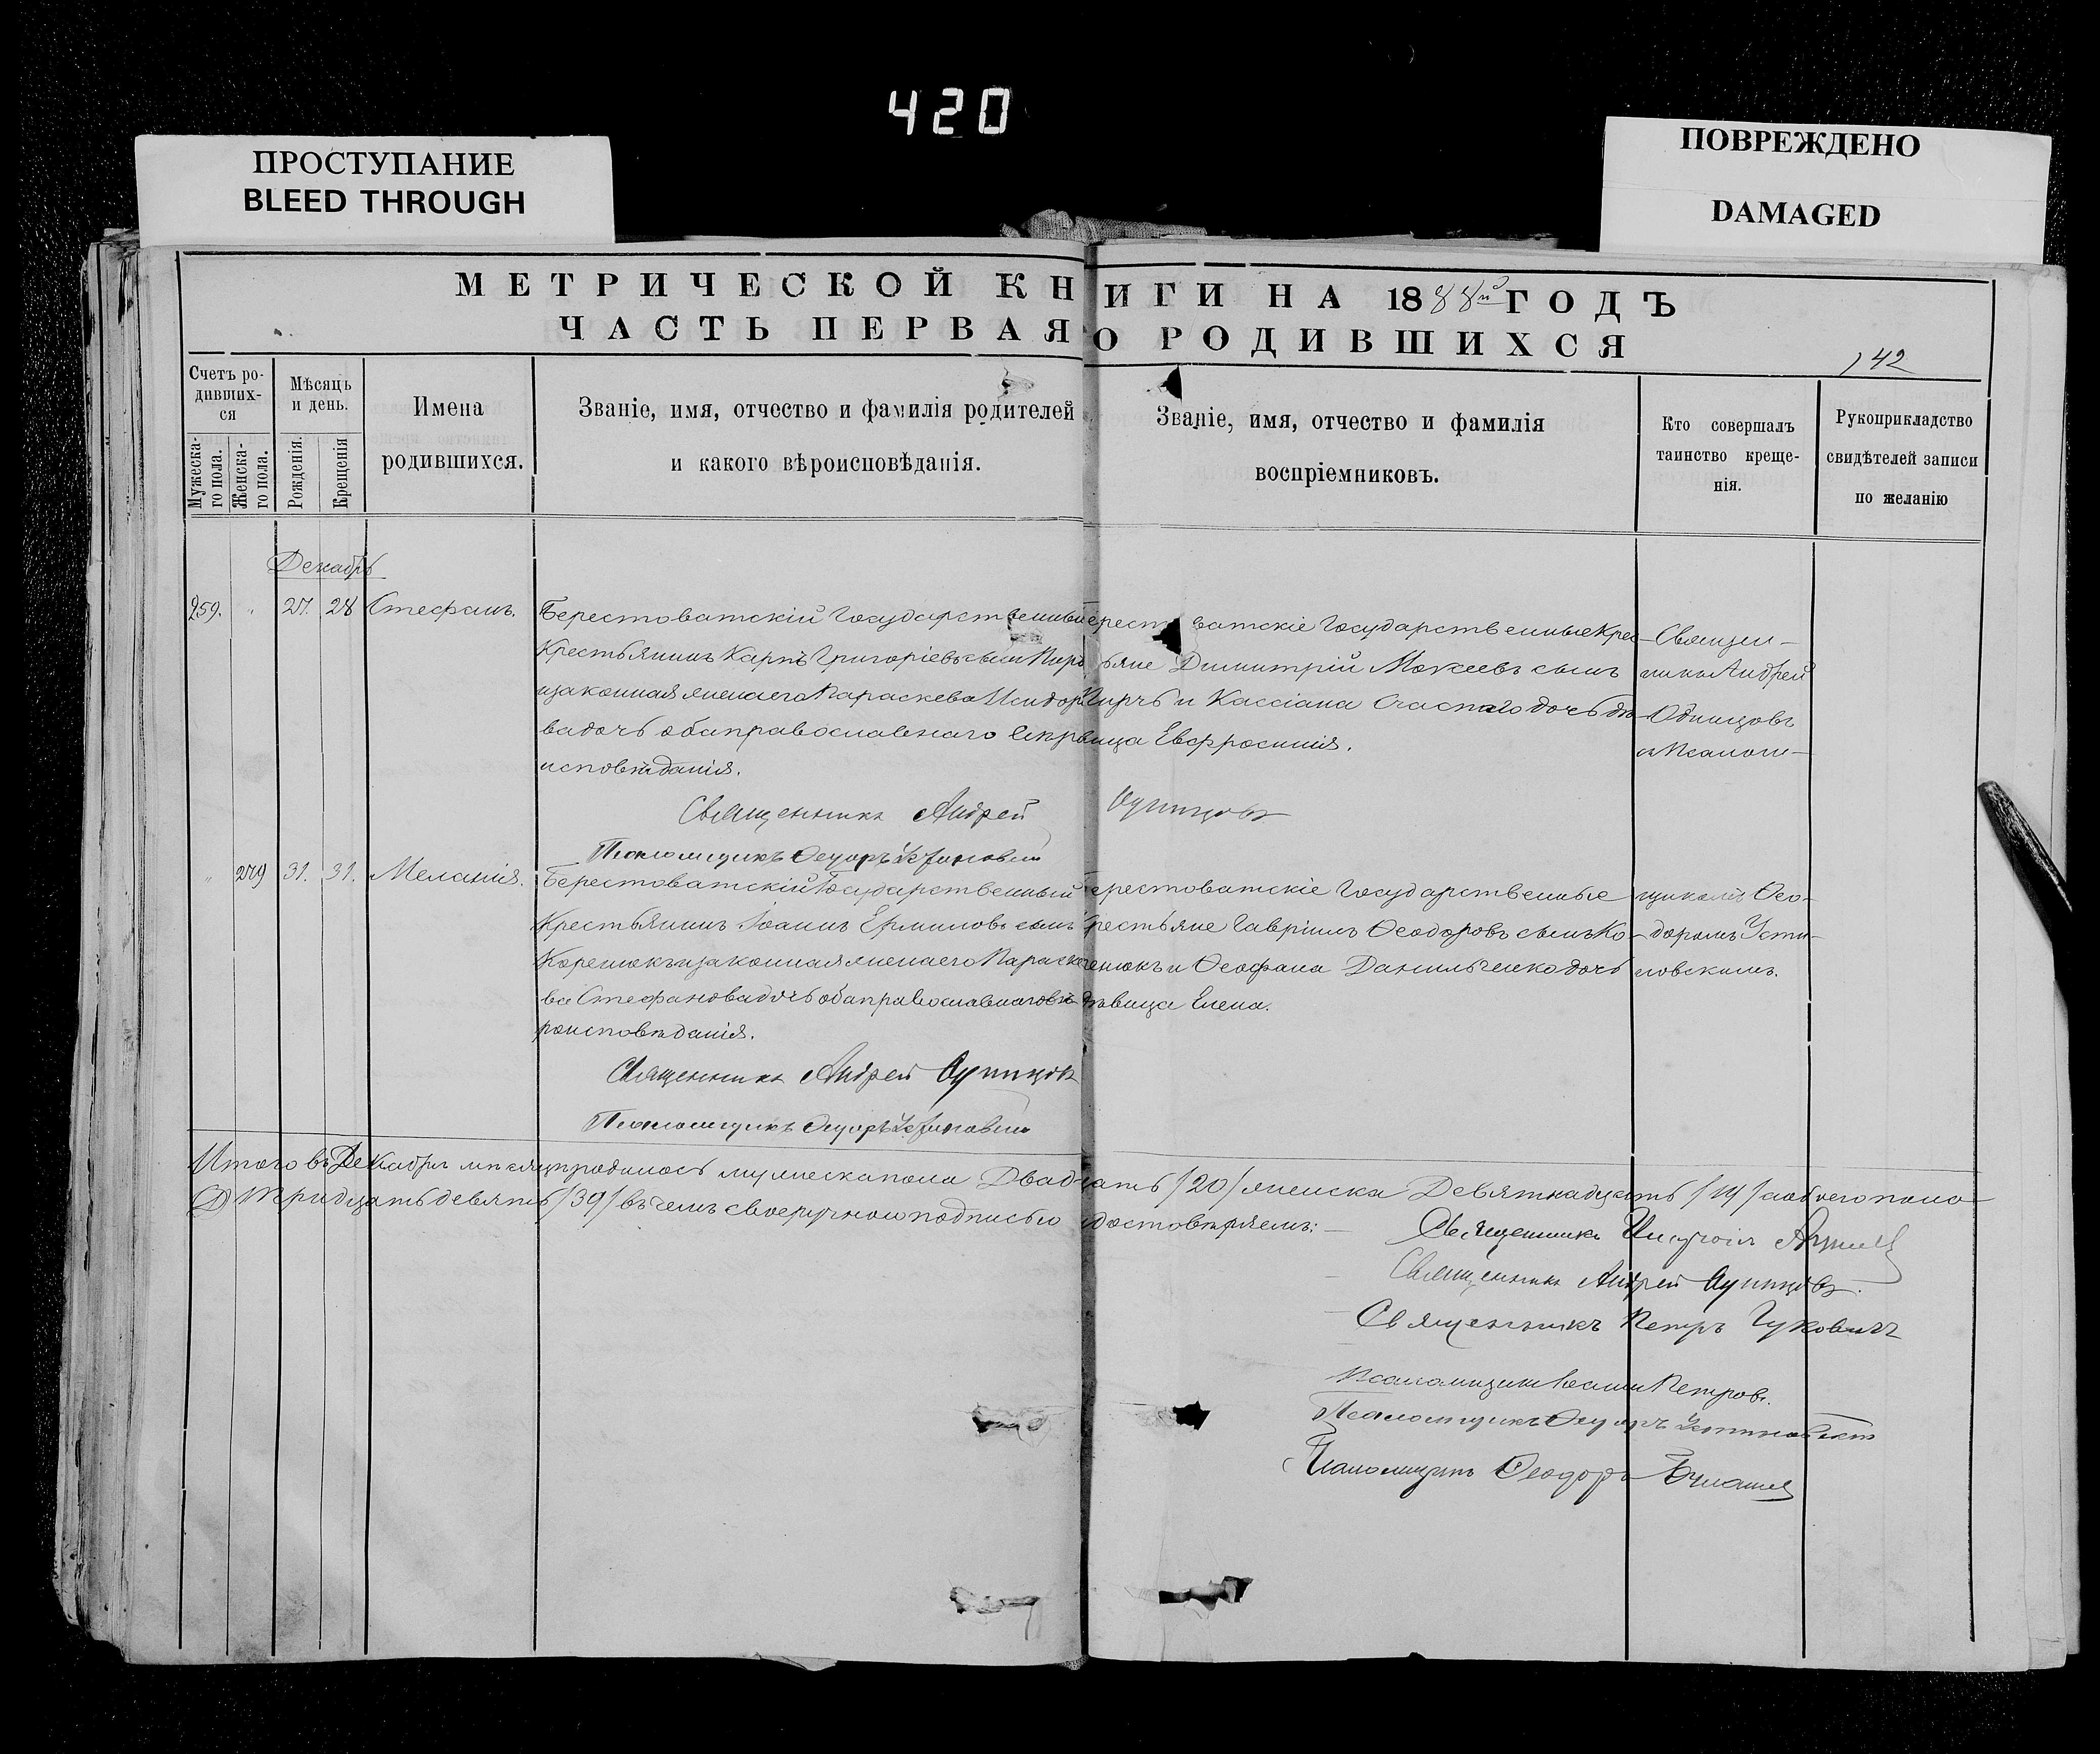 420
ПРОСТУПАНИЕ
BLEED THROUGH
ПОВРЕЖДЕНО
DAMAGED
МЕТРИЧЕСКОЙ КНИГИ НА 1888й ГОДЪ
ЧАСТЬ ПЕРВАЯ О РОДИВШИХСЯ
142
Счетъ ро-
дивших-
ся
Мужеска-
го пола.
Женска-
го пола.
Мѣсяцъ
и день.
Рожденія.
Крещенія
Имена
родившихся.
Званіе, имя, отчество и фамилія родителей
и какого вѣроисповѣданія.
Званіе, имя, отчество и фамилія
воспріемниковъ.
Кто совершалъ
таинство креще-
нія.
Рукоприкладство
свидѣтелей записи
по желанію
Декабрь
259. " 27. 28 Стефанъ.
Берестоватскій Государственный
Крестьянинъ Карпъ Григоріевъ сынъ
изаконная жена его Параскева Исидоро
ва дочь оба православнаго
исповѣданія.
Берестоватскіе Государственные Крес-
тьяне Димитрій Мокеевъ сынъ
и Кассіана дочь дѣ-
вица Евфросинія.
Священ-
никъ Андрей
Одинцовъ
съ Псалом-
Священникъ Андрей Одинцовъ
Псаломщикъ Ѳедоръ Устиновскій
" 279 31. 31. Меланія.
Берестоватскій Государственный
Крестьянинъ Іоаннъ Ермиловъ сынъ
Коренюкъ изаконная жена его Параске
ва Стефанова дочь оба православнаго вѣ-
роисповѣданія.
Берестоватскіе Государственные
Крестьяне Гавріилъ Ѳеодоровъ сынъ Ко-
ренюкъ и Ѳеофана Данильченко дочь
дѣвица Елена.
щикомъ Ѳео-
доромъ Усти-
новскимъ.
Священникъ Андрей Одинцовъ
Псаломщикъ Ѳедоръ Устиновскій
Итого въ Декабрѣ мѣсяцѣ родилось мужеска пола Двадцать /20/ женска Девятнадцать /19/ а обоего пола
Тридцать девять /39/ въ чемъ своеручною подписью удостовѣряемъ:
Священникъ
Священникъ Андрей Одинцовъ.
Священникъ Петръ Чуковичъ
Псаломщикъ Іоаннъ Петровъ.
Псаломщикъ Ѳедоръ Устиновскій
Псаломщикъ Ѳеодоръ